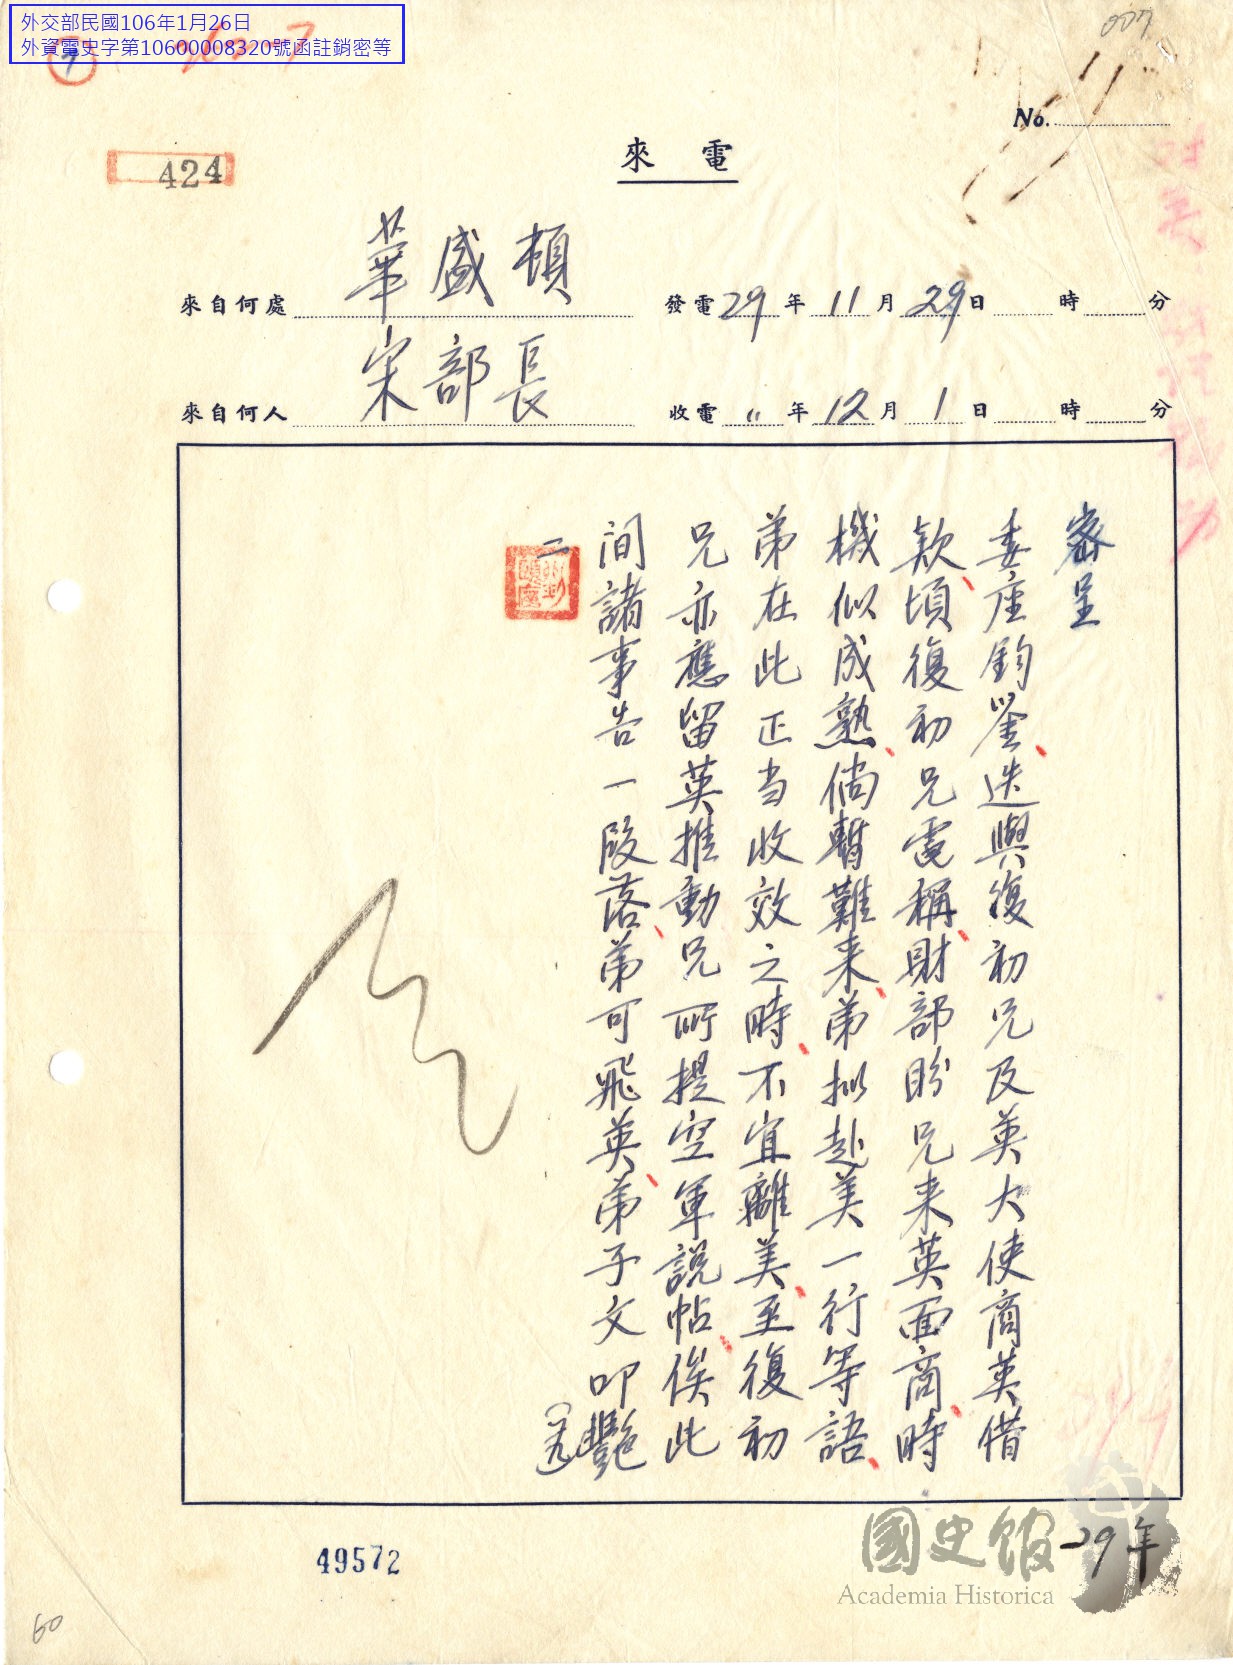 外交部民國106年1月26日
外資電史字第10600008320號函註銷密等
7
007
No.
來電
424
來自何處 華盛頓
發電29年11月29日 時 分
來自何人 宋部長
收電〃年12月1日 時 分
密呈
委座鈞鑒迭與復初兄及英大使商英借
款頃復初兄電稱財部盼兄来英面商時
機似成熟倘暫難来弟拟赴美一行等語
弟在此正当收效之時不宜離美至復初
兄亦應留英推動兄所提空軍說帖俟此
間諸事告一段落弟可飛英弟子文叩豔
49572
國史館
Academia Historica
29年
60